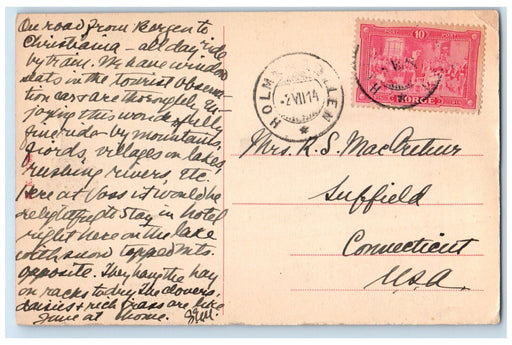 On road from Bergen to
Christiania - all day ride
by train. We have window
seats in the tourist observa-
tion cars are thoroughly en-
joying this wonderfully
fine ride by mountains,
fiords, villages on lakes,
rushing rivers, etc.
Here at Voss it would be
delightful to stay in hotel
right here on the lake
with snow topped mts.
opposite. They hang the hay
on racks to dry. The clovers,
daisies & rich grass are like
June at home.
HOLMENKOLLEN
-2 VII 14
POST 10 POST
NORGE
Mrs. R. S. MacArthur
Suffield
Connecticut
U.S.A.